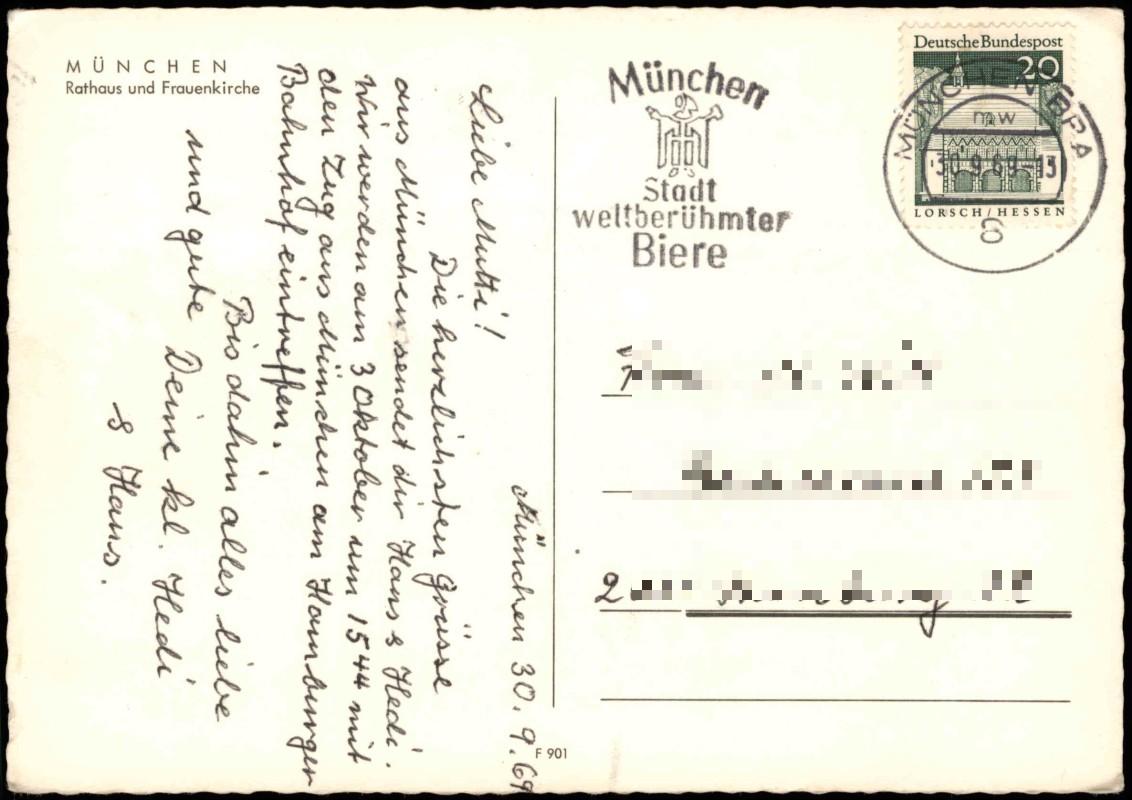 MÜNCHEN
Rathaus und Frauenkirche
München 30.9.69
Liebe Mutti!
Die herzlichsten Grüsse
aus München sendet dir Hans & Hedi.
Wir werden am 3 Oktober um 1544 mit
den Zug aus München am Hamburger
Bahnhof eintreffen.
Bis dahin alles liebe
und gute Deine kl. Hedi
& Hans.
F 901
München
Stadt
weltberühmter
Biere
Deutsche Bundespost
20
LORSCH/HESSEN
MÜNCHEN BPA
mw
30.9.69-13
8
2